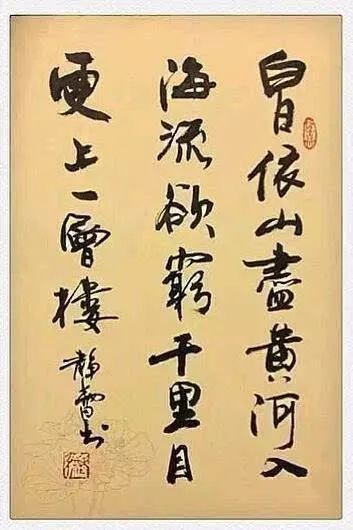 白日依山盡黄河入
海流欲窮千里目
更上一層樓
靜雷書